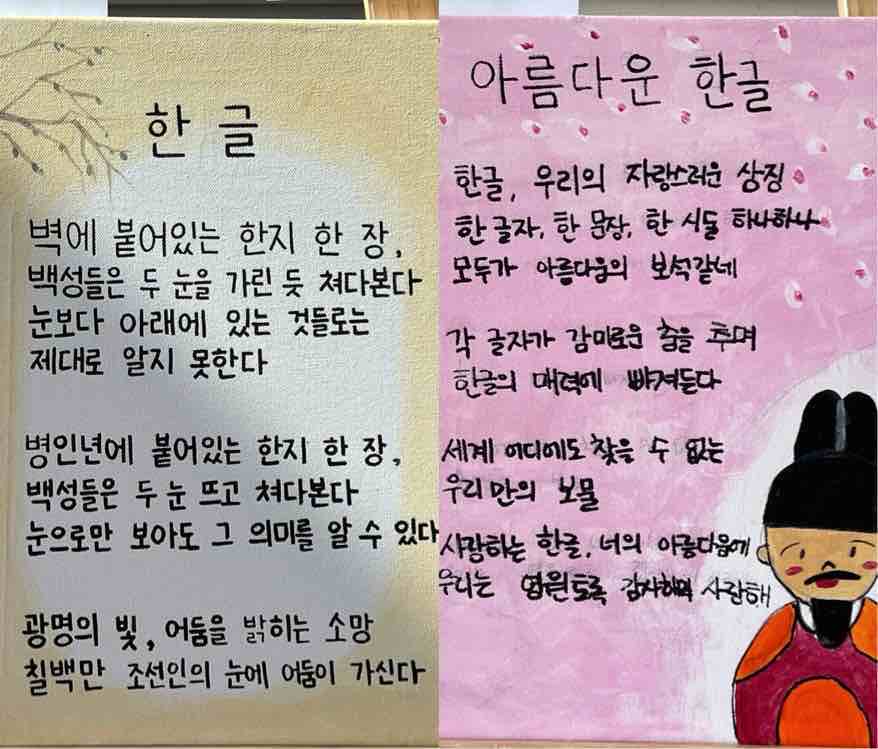 한글
벽에 붙어있는 한지 한 장,
백성들은 두 눈을 가린 듯 쳐다본다
눈보다 아래에 있는 것들로는
제대로 알지 못한다
병인년에 붙어있는 한지 한 장,
백성들은 두 눈 뜨고 쳐다본다
눈으로만 보아도 그 의미를 알 수 있다
광명의 빛, 어둠을 밝히는 소망
칠백만 조선인의 눈에 어둠이 가신다
아름다운 한글
한글, 우리의 자랑스러운 상징
한 글자, 한 문장, 한 시들 하나하나
모두가 아름다움의 보석같네
각 글자가 감미로운 춤을 추며
한글의 매력에 빠져든다
세계 어디에도 찾을 수 없는
우리만의 보물
사랑하는 한글, 너의 아름다움에
우리는 영원토록 감사하며 사랑해